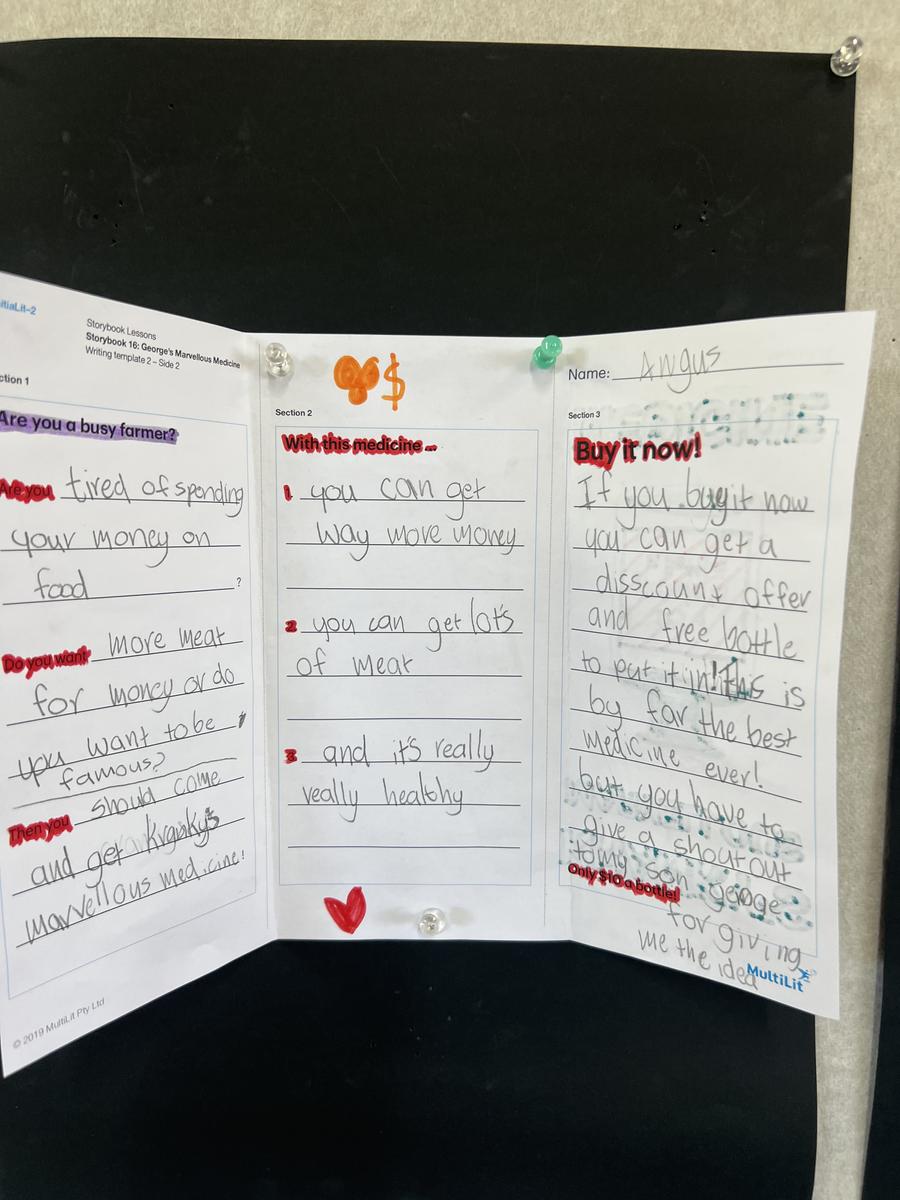 itiaLit-2
Storybook Lessons
Storybook 16: George's Marvellous Medicine
Writing template 2 – Side 2
ction 1
Are you a busy farmer?
Are you tired of spending
your money on
food ?
Do you want more meat
for money or do
you want to be
famous?
Then you should come
and get kranky's
marvellous medicine!
© 2019 MultiLit Pty Ltd
$
Section 2
With this medicine ...
1. you can get
way more money
2. you can get lot's
of meat
3. and it's really
really healthy
Name: Angus
Section 3
Buy it now!
If you buy it now
you can get a
disscount offer
and free bottle
to put it in! This is
by far the best
medicine ever!
but you have to
give a shout out
to my son geoge
Only $10 a bottle!
for giving
me the idea
MultiLit